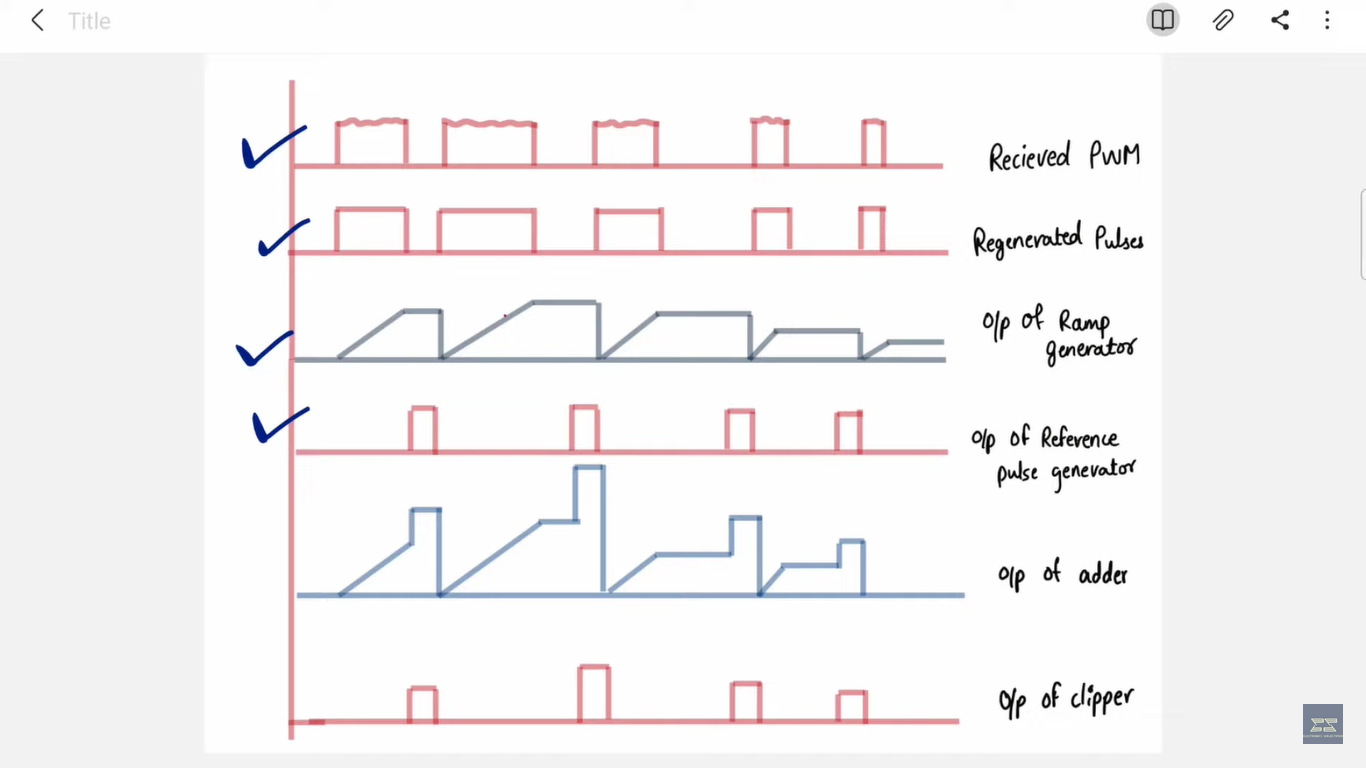 Title
Recieved PWM
Regenerated Pulses
o/p of Ramp
generator
o/p of Reference
pulse generator
o/p of adder
o/p of clipper